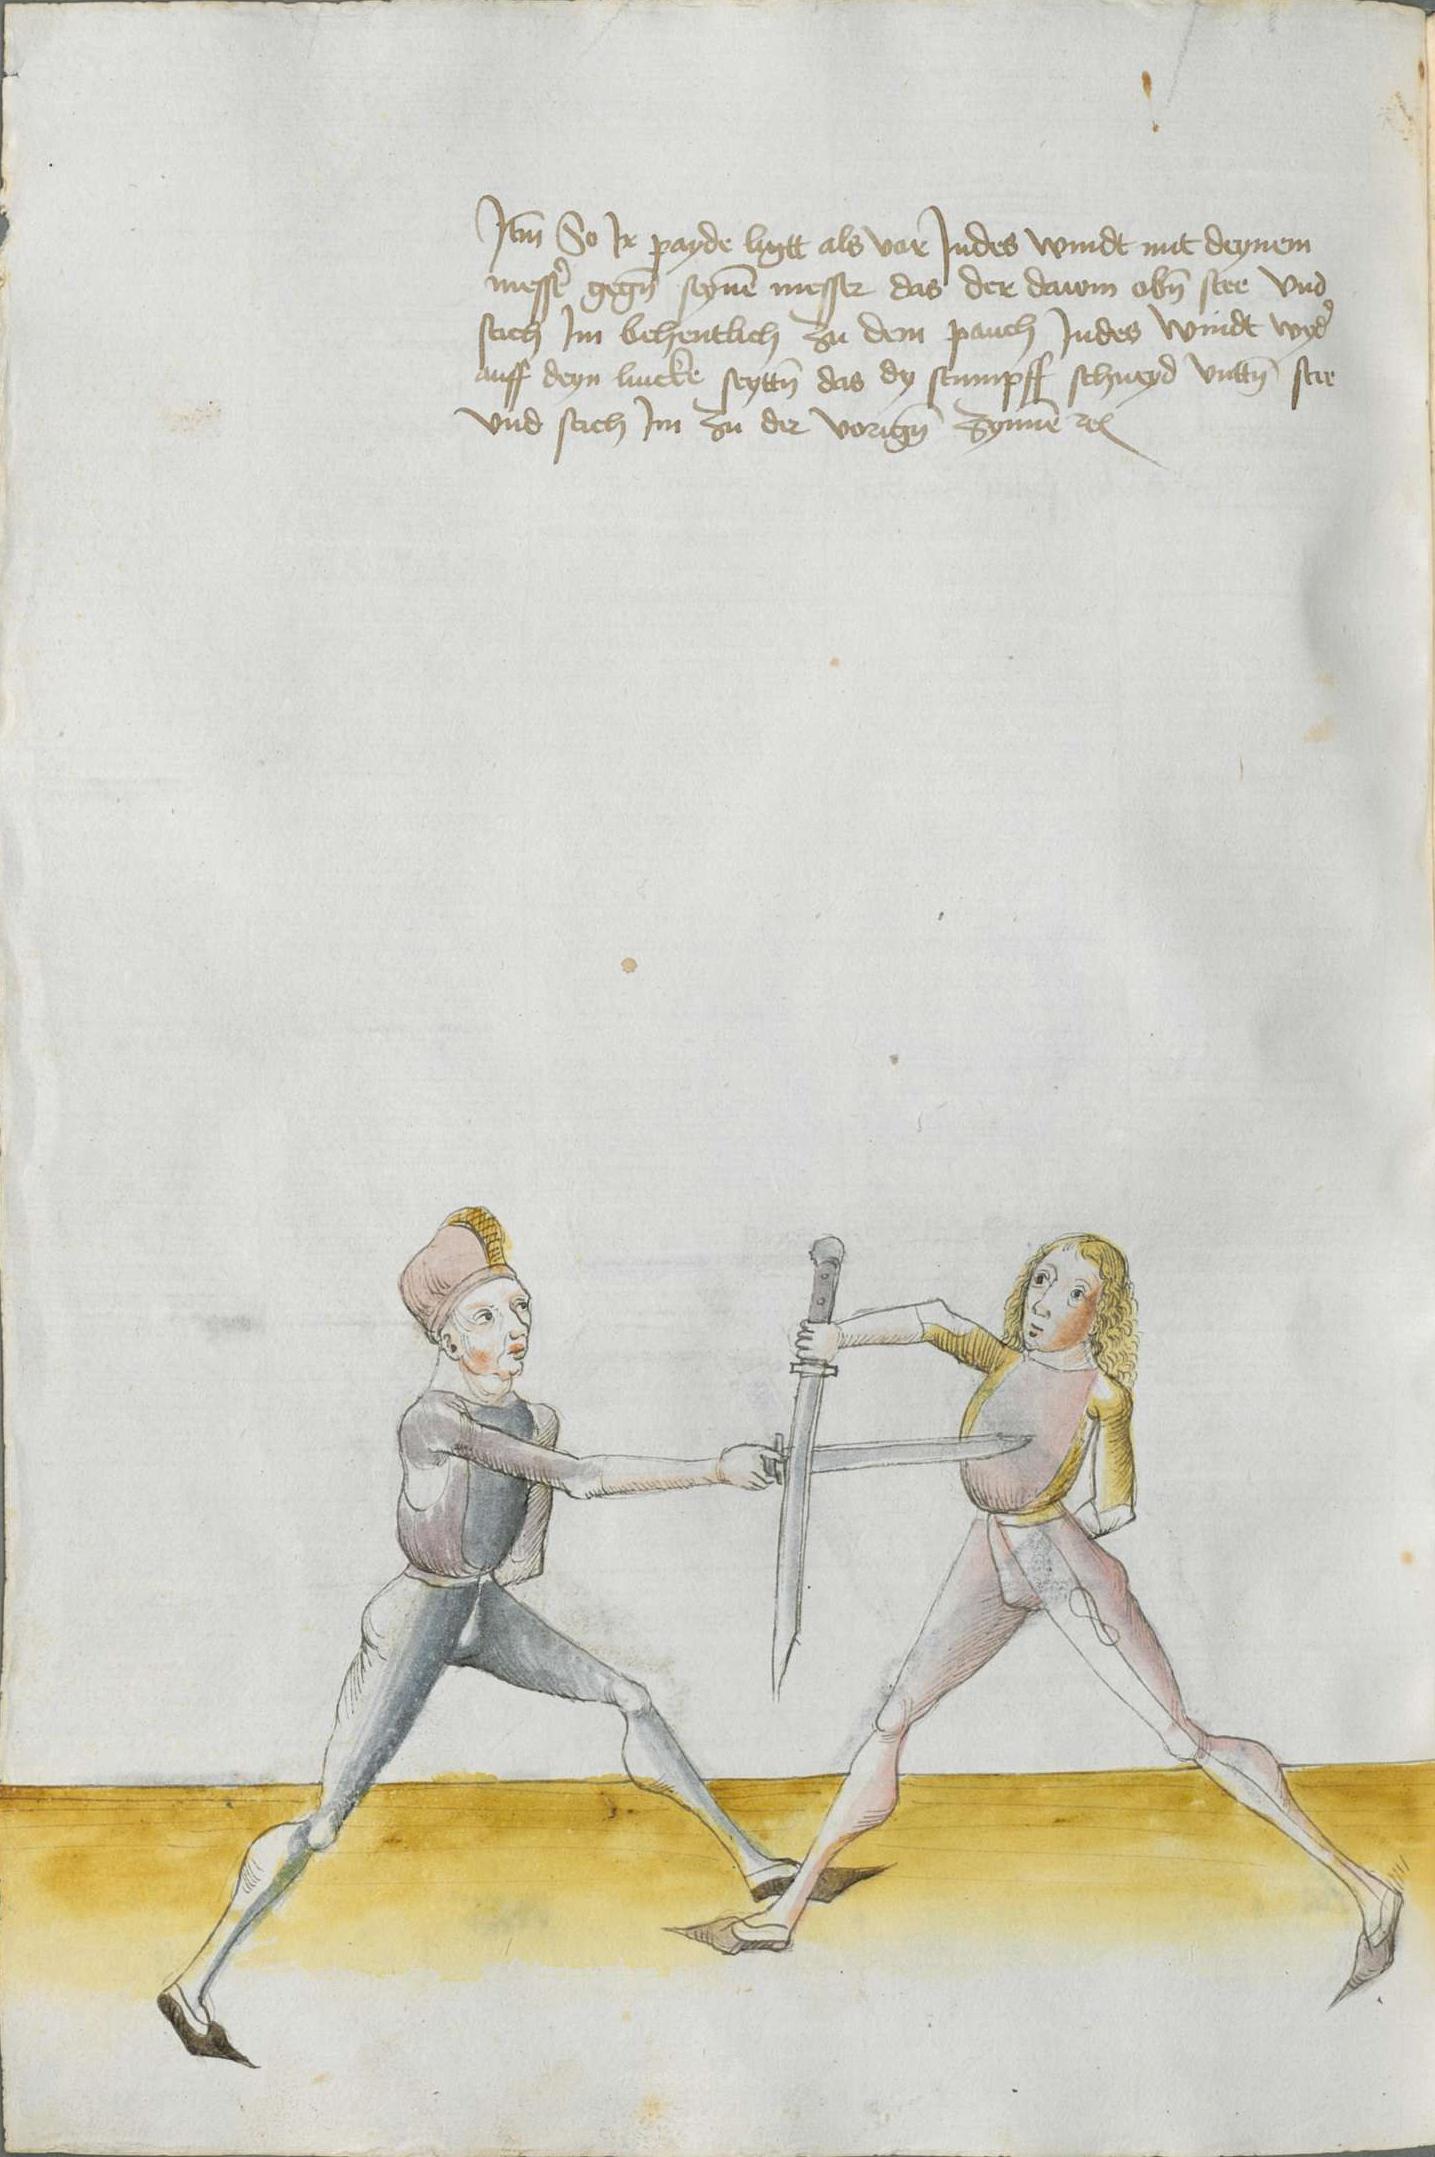 Itm̄ So Ir payde ligtt als vor Indes windt mit deynem
messer̉ gegn̄ seynē messer das der dawm obn̄ stee Vnd
stich Im behentlich zu dem pauch Indes Windt wyd̉
auff deyn lincke seyttn̄ das dy stumpff schneyd vnttn̄ stee
vnd stich Im zu der vorign̄ Zynnē